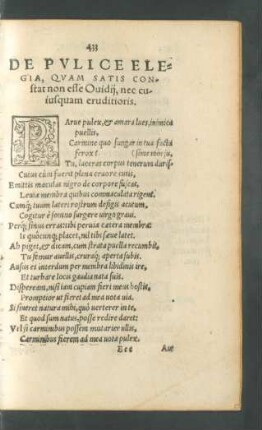 433
DE PVLICE ELE-
GIA, QVAM SATIS CON-
stat non esse Ouidij, nec cu-
iusquam eruditioris.
PArue pulex, & amara lues, inimica
puellis,
Carmine quo fungar in tua facta
ferox?
Tu laceras corpus tenerum
Cuius cùm fuerit plena cruore cutis,
Emittis maculas nigro de corpore fuscas,
Leuia membra quibus commaculata rigent.
Cumq; tuum lateri rostrum defigis acutum,
Cogitur è somno surgere virgo graui.
Perq; sinus erras: tibi peruia cætera membra:
Is quocunq; placet, nil tibi sæue latet.
Ah piget, & dicam, cum strata puella recumbit,
Tu femur auellis, cruraq; aperta subis.
Ausus es interdum per membra libidinis ire,
Et turbare locis gaudia nata suis.
Dispeream, nisi iam cupiam fieri meus hostis,
Promptior vt fieret ad mea vota via.
Si sineret natura mihi, quò verterer in te,
Et quod sum natus, posse redire daret:
Vel si carminibus possem mutarier vllis,
Carminibus fierem ad mea vota pulex.
Eee Aut